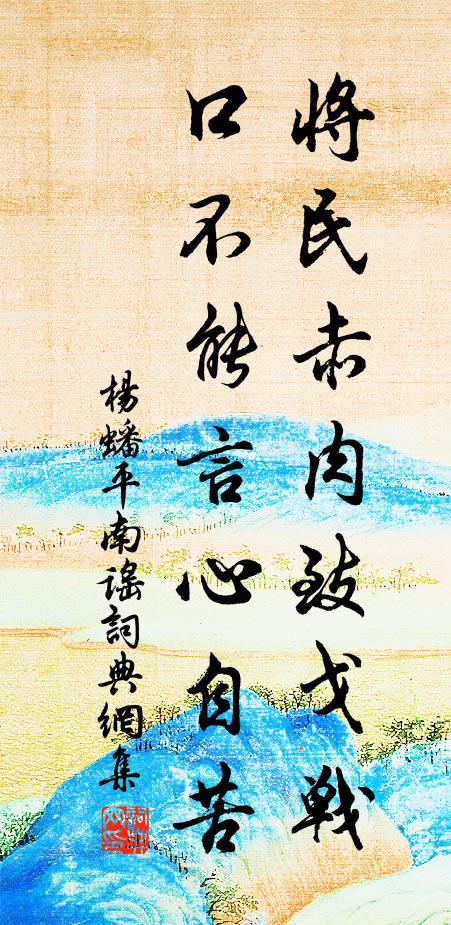 将民赤肉致戈戰
口不能言心自苦
楊蟠平南謠詞典網集